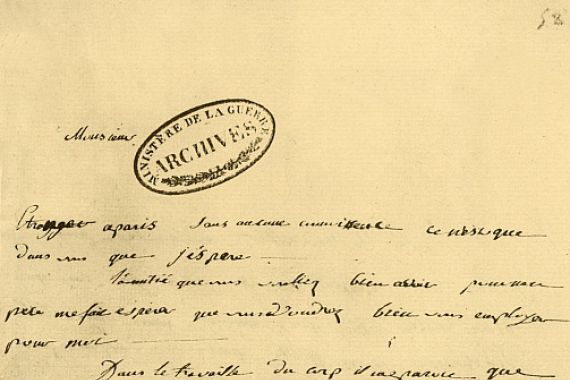 58
Monsieur
MINISTÈRE DE LA GUERRE
ARCHIVES
Etranger aparis sans aucune ce nest que
dans vous que j'espere
lamitié que vous bien avoir pour mon
pere me fait esperer que vous voudrez bien vous employer
pour moi
Dans le travaille du corp il ma paruie que